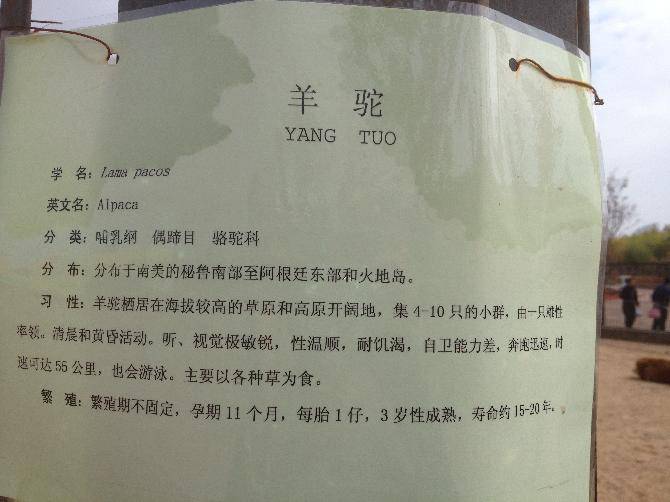 羊 驼
YANG TUO
学 名：Lama pacos
英文名：Alpaca
分 类：哺乳纲 偶蹄目 骆驼科
分 布：分布于南美的秘鲁南部至阿根廷东部和火地岛。
习 性：羊驼栖居在海拔较高的草原和高原开阔地，集 4-10 只的小群，由一只雄性
率领。清晨和黄昏活动。听、视觉极敏锐，性温顺，耐饥渴，自卫能力差，奔跑迅速，时
速可达 55 公里，也会游泳。主要以各种草为食。
繁 殖：繁殖期不固定，孕期 11 个月，每胎 1 仔，3 岁性成熟，寿命约 15-20 年。